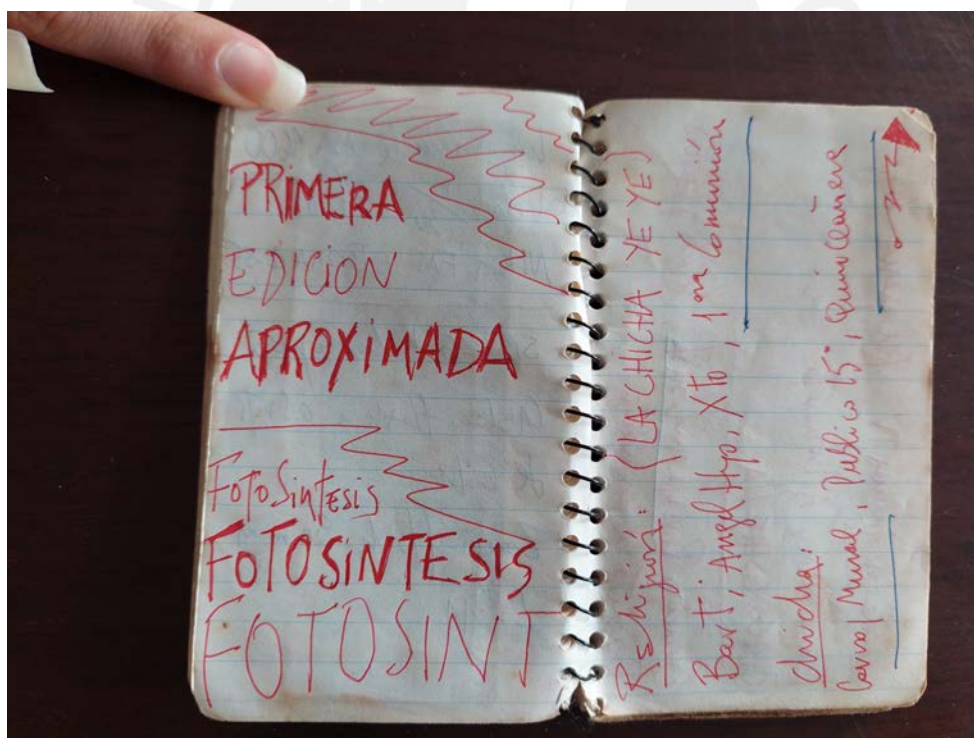 PRIMERA
EDICION
APROXIMADA
FotoSintesis
FOTOSINTESIS
FOTOSINT
Religión: (LA CHICHA YE YE)
Baut, Angel Hyo, Xto, 1era Comunión
chicha:
Cerro/Mural, Publico 15º, Quinceañera